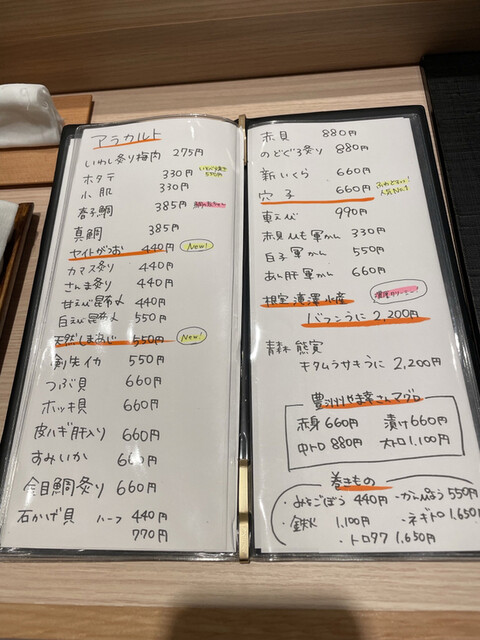 アラカルト
いわし炙り梅肉 275円
ホタテ 330円
550円
小肌 330円
春子鯛 385円
真鯛 385円
ケイトがつお 440円 New!
カマス炙り 440円
さんま炙り 440円
甘えび昆布〆 440円
白えび昆布〆 550円
天然しまあじ 550円 New!
剣先イカ 550円
つぶ貝 660円
ホッキ貝 660円
皮ハギ肝入り 660円
すみいか 660円
金目鯛炙り 660円
石かげ貝 ハーフ 440円
770円
赤貝 880円
のどぐろ炙り 880円
新いくら 660円
穴子 660円
人気No.1
車えび 990円
赤貝ひも軍かん 330円
白子軍かん 550円
あん肝軍かん 660円
根室 濱澤水産
バフンうに 2,200円
青森 熊實
キタムラサキうに 2,200円
豊洲やま幸さんマグロ
赤身 660円 漬け 660円
中トロ 880円 大トロ 1,100円
巻きもの
・みそごぼう 440円 ・かんぴょう 550円
・鉄火 1,100円 ・ネギトロ 1,650円
・トロタク 1,650円